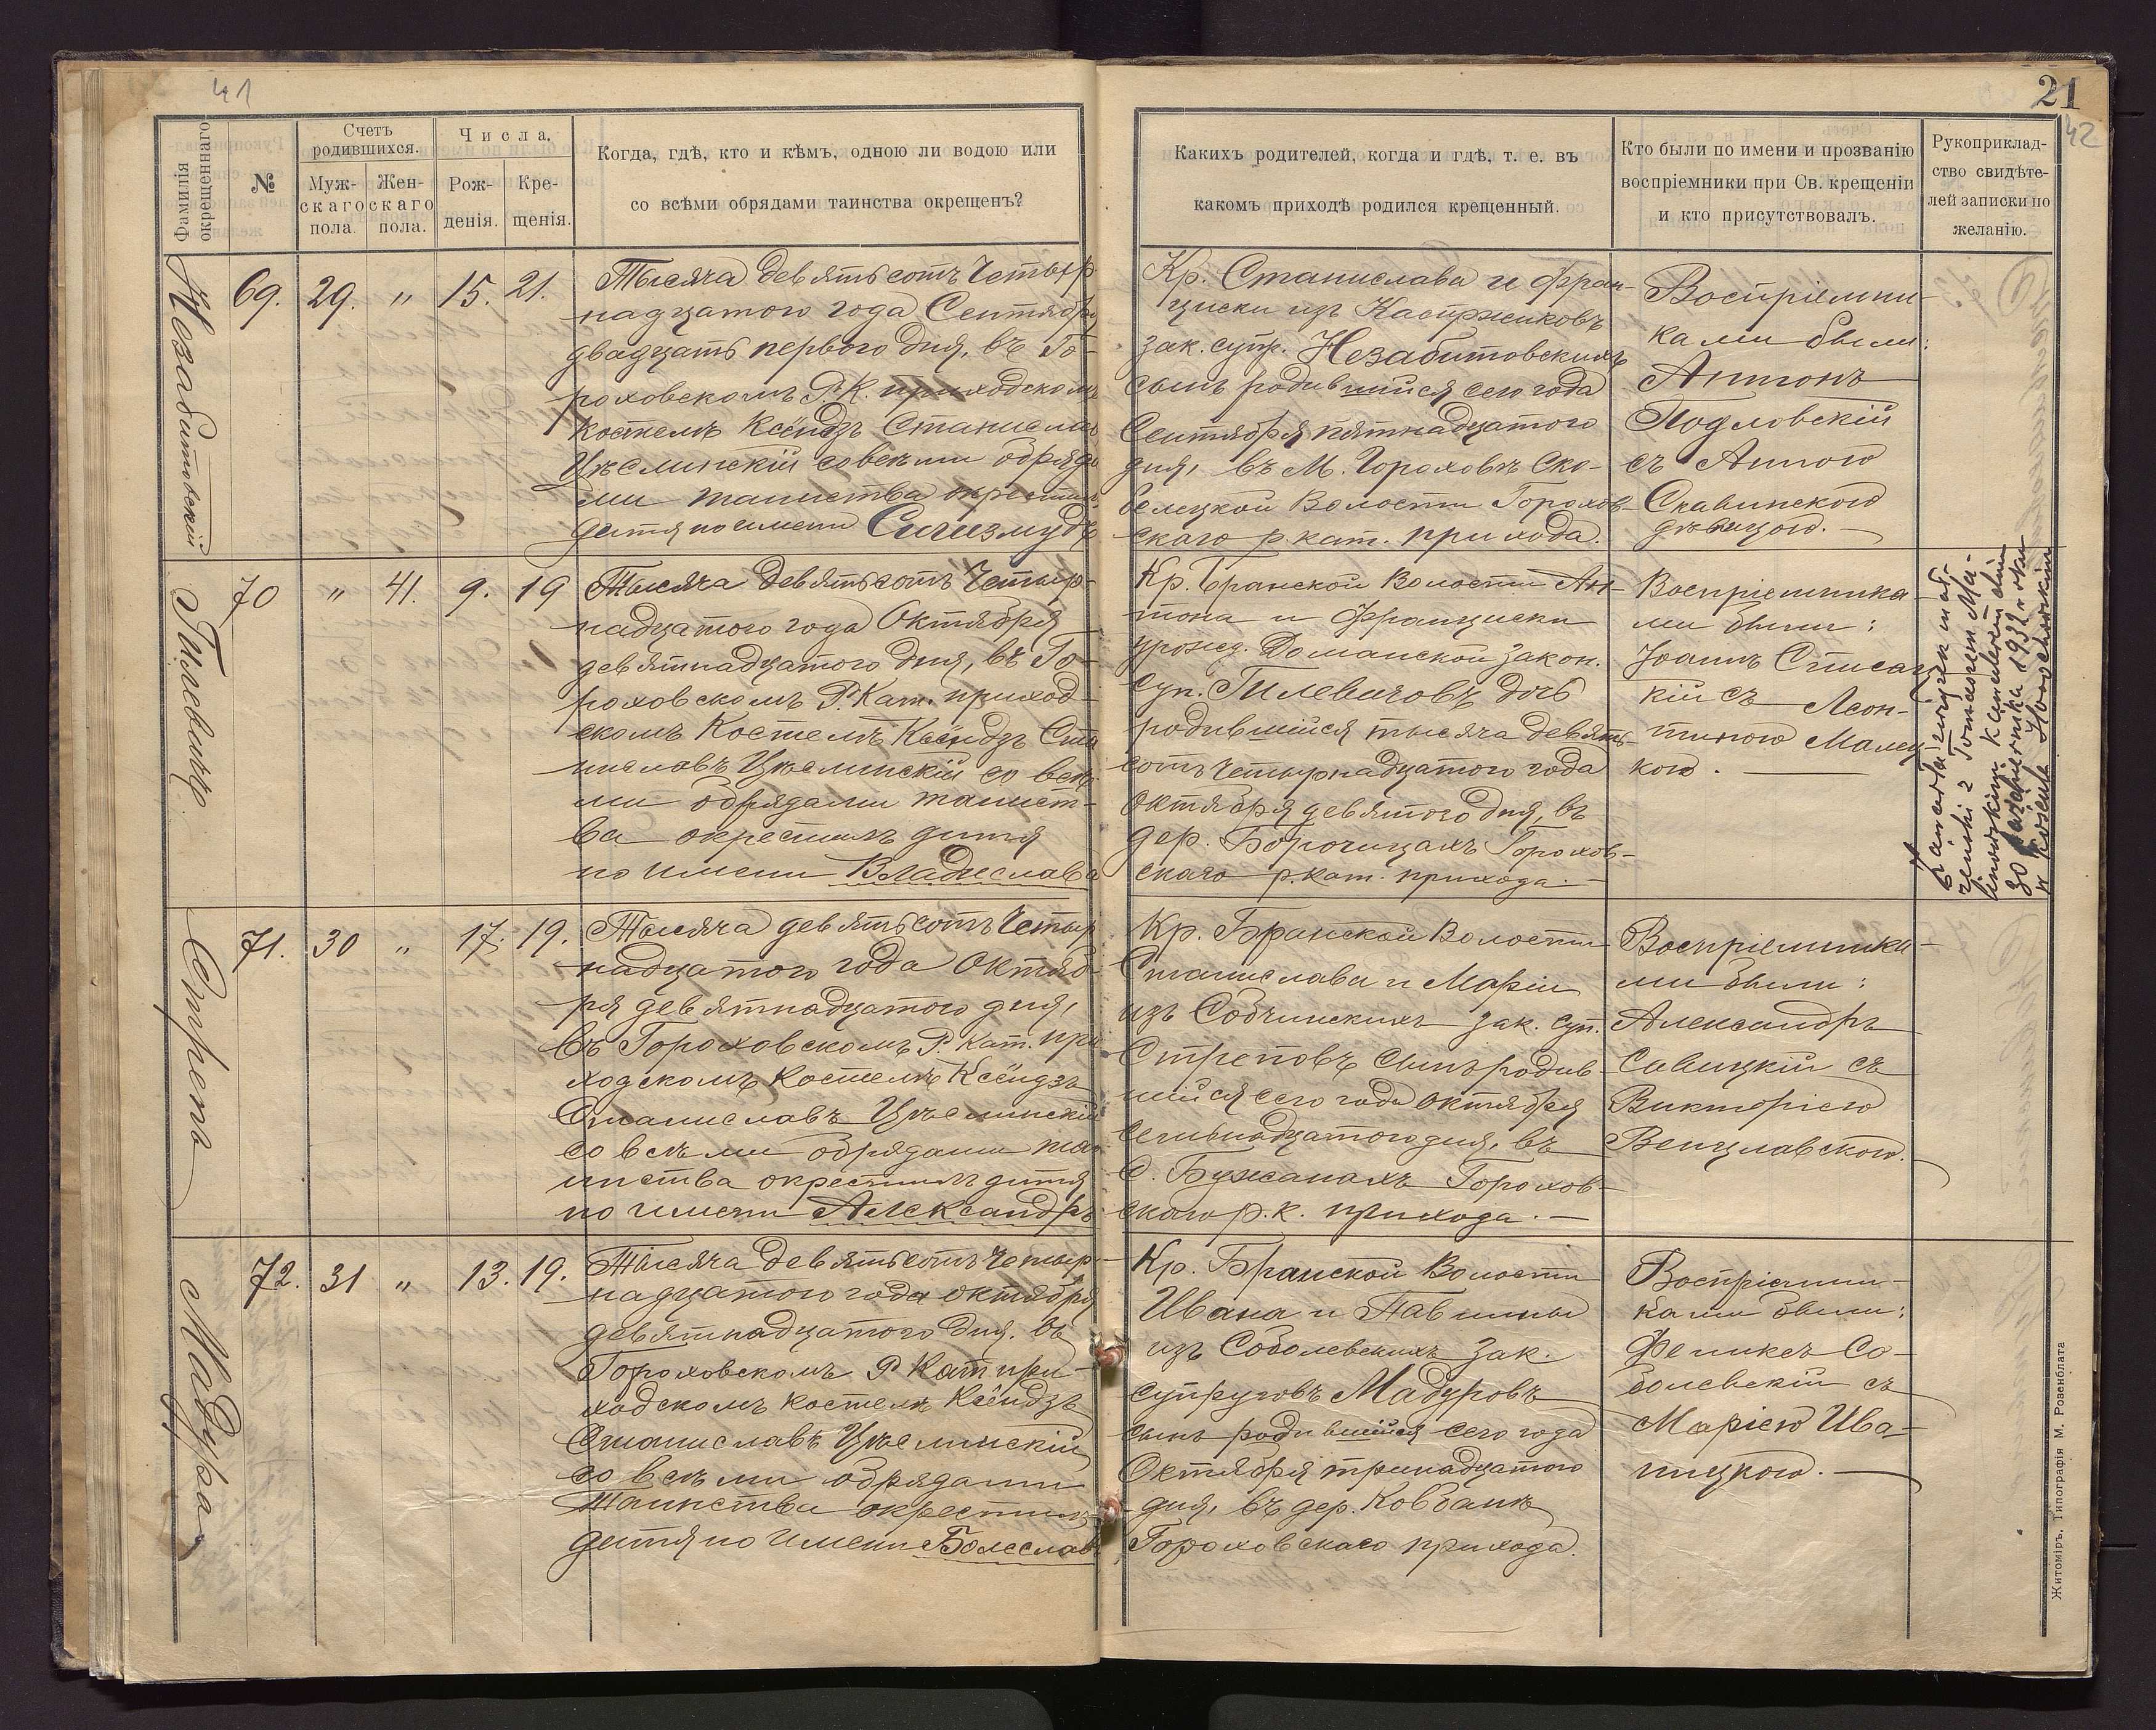 41
21
42
Фамилія окрещеннаго
№
Счетъ родившихся.
Муж- скаго пола.
Жен- скаго пола.
Числа.
Рож- денія.
Кре- щенія.
Когда, гдѣ, кто и кѣмъ, одною ли водою или
со всѣми обрядами таинства окрещенъ?
Какихъ родителей, когда и гдѣ, т. е. въ
какомъ приходѣ родился крещенный.
Кто были по имени и прозванію
воспріемники при Св. крещеніи
и кто присутствовалъ.
Рукоприклад-
ство свидѣте-
лей записки по
желанію.
Незабитовскій
69. 29. " 15. 21.
Тысяча девятьсотъ четыр
надцатого года Сентября
двадцать первого дня, въ Го-
роховскомъ Р. К. приходскомъ
костелѣ Ксёндзъ Станиславъ
Цѣслинскій со всѣми обряда
ми таинства окрестилъ
дитя по имени Сигизмудъ
Кр. Станислава и Фран-
циски изъ Каспржиковъ
зак. супр. Незабитовскихъ
сынъ родившійся сего года
Сентября пятнадцатого
дня, въ М. Гороховѣ Ско-
белецкой Волости Горохов-
скаго р. кат. прихода.
Воспріемни-
ками были:
Антонъ
Подловскій
съ Анною
Славинскою
дѣвицою.
Гилевичъ
70 " 41. 9. 19
Тысяча девятьсотъ четыр-
надцатого года Октября
девятнадцатого дня, въ Го-
роховскомъ Р. Кат. приход-
скомъ Костелѣ Ксёндзъ Ста
ниславъ Цѣслинскій со всѣ
ми обрядами таинст-
ва окрестилъ дитя
по имени Владислава
Кр. Бранской Волости Ан-
тона и Франциски
урожд. Доманской закон.
суп. Гилевичовъ дочь
родившійся тысяча девять-
сотъ четырнадцатого года
Октября девятого дня, въ
дер. Борочицахъ Горохов-
скаго р. кат. прихода.
Воспріемника-
ми были:
Іоаннъ
кій съ Леон-
тиною Малец-
кою.
Zawarła związek mał-
żeński z Tomaszem Ma-
30 października 1932 roku
w kościele
Стрепъ
71. 30 " 17. 19.
Тысяча девятьсотъ четыр
надцатого года Октяб-
ря девятнадцатого дня,
въ Гороховскомъ Р. Кат. при
ходскомъ Костелѣ Ксёндзъ
Станиславъ Цѣслинскій
со всѣми обрядами та-
инства окрестилъ дитя
по имени Александръ
Кр. Бранской Волости
Станислава и Маріи
изъ Собчинскихъ зак. суп.
Стреповъ сынъ родив-
шійся сего года Октября
семьнадцатого дня, въ
С. Бужанахъ Горохов-
скаго р. к. прихода.
Воспріемника-
ми были:
Александръ
Савицкій съ
Викторіею
Венцлавскою.
Мадура
72. 31 " 13. 19.
Тысяча девятьсотъ четыр-
надцатого года октября
девятнадцатого дня. въ
Гороховскомъ Р Кат при-
ходскомъ костелѣ Ксёндзъ
Станиславъ Цѣслинскій
со всѣми обрядами
Таинства окрестилъ
дитя по имени Болеслав.
Кр. Бранской Волости
Ивана и Павлины
изъ Соболевскихъ зак.
супруговъ Мадуровъ
сынъ родившійся сего года
Октября тринадцатого
дня, въ дер. Ковбанѣ
Гороховскаго прихода.
Воспріемни-
ками были:
Феликсъ Со-
болевскій съ
Маріею Ива-
ницкою.
Житоміръ, Типографія М. Розенблата